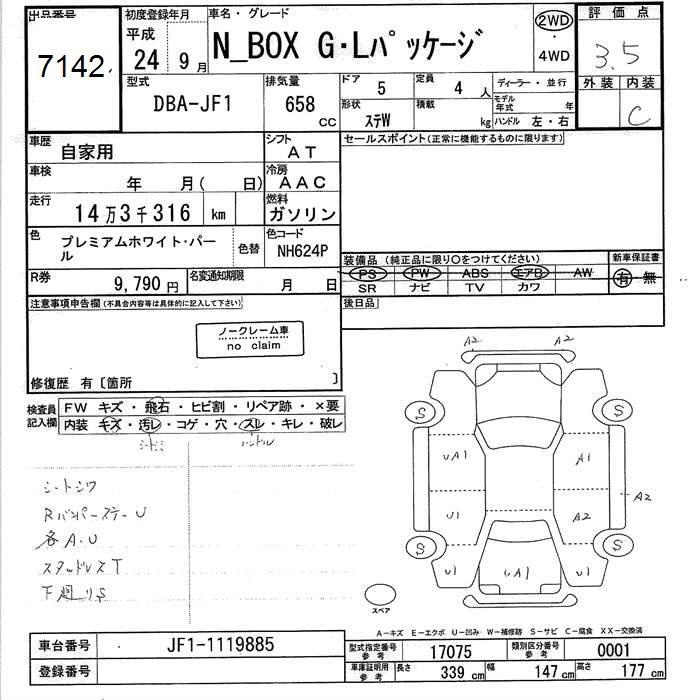 出品番号 初度登録年月 車名・グレード 評価点
7142 平成 24 9月 N_BOX G・Lパッケージ 2WD ・ 4WD 3.5
型式 排気量 ドア 定員 ディーラー・並行 外装 内装
DBA-JF1 658 cc 5 4 人 モデル年式 年 C
形状 ステW 積載 kg ハンドル 左・右
車歴 自家用 シフト AT セールスポイント(正常に機能するものに限ります)
車検 年 月( 日) 冷房 AAC
走行 14万3千316 km 燃料 ガソリン
色 プレミアムホワイト・パール 色替 色コード NH624P
装備品(純正品に限り○をつけてください) 新車保証書
PS PW ABS エアB AW 有・無
SR ナビ TV カワ
R券 9,790円 名変通知期限 月 日
後日品
注意事項申告欄(不具合内容等は具体的に記入して下さい)
ノークレーム車
no claim
修復歴 有〔箇所 〕
検査員記入欄 FW キズ・飛石・ヒビ割・リペア跡・×要
内装 キズ・汚レ・コゲ・穴・スレ・キレ・破レ
ハンドル
シートシワ
RバンパーステーU
各A.U
スタッドレスT
下廻りS
A2 A2
S S
UA1 A1
A2
U1 A2
S S
U1 UA1 U1
スペア
A-キズ E-エクボ U-凹み W-補修跡 S-サビ C-腐食 XX-交換済
車台番号 JF1-1119885 型式指定番号参考 17075 類別区分番号参考 0001
登録番号 車庫証明用参考 長さ 339cm 幅 147cm 高さ 177cm